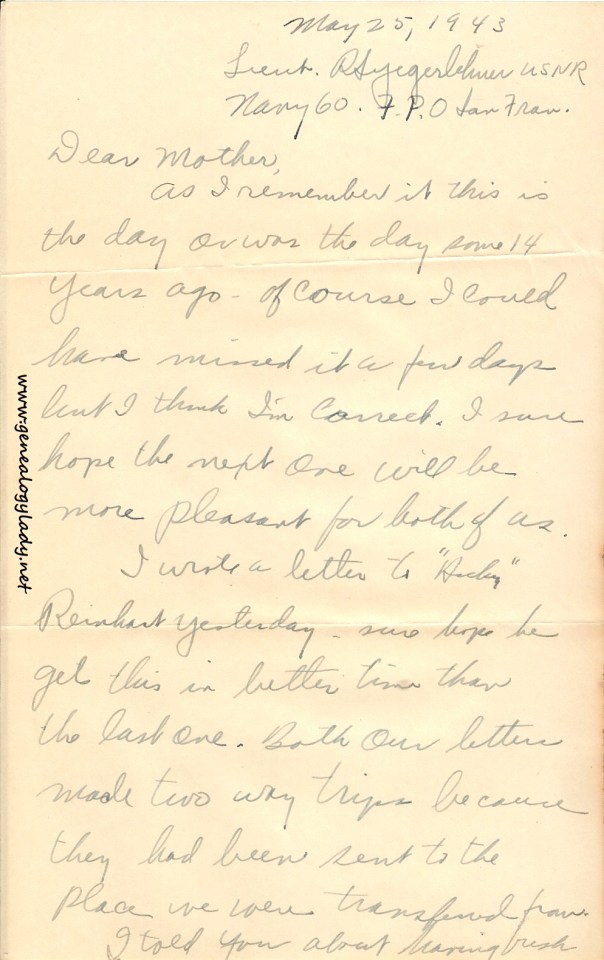 May 25, 1943
Lieut. RSYegerlehner USNR
Navy 60. F.P.O San Fran.
Dear Mother,
As I remember it this is
the day or was the day some 14
years ago - of course I could
have missed it a few days
but I think I'm correct. I sure
hope the next one will be
more pleasant for both of us.
I wrote a letter to
Reinhart yesterday - sure hope he
get this in better time than
the last one. Both our letters
made two way trips because
they had been sent to the
place we were transferred from.
I told you about having
www.genealogylady.net